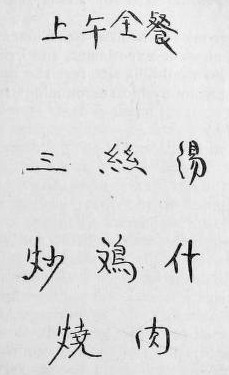 上午全餐
三絲湯
炒鷄什
燒肉